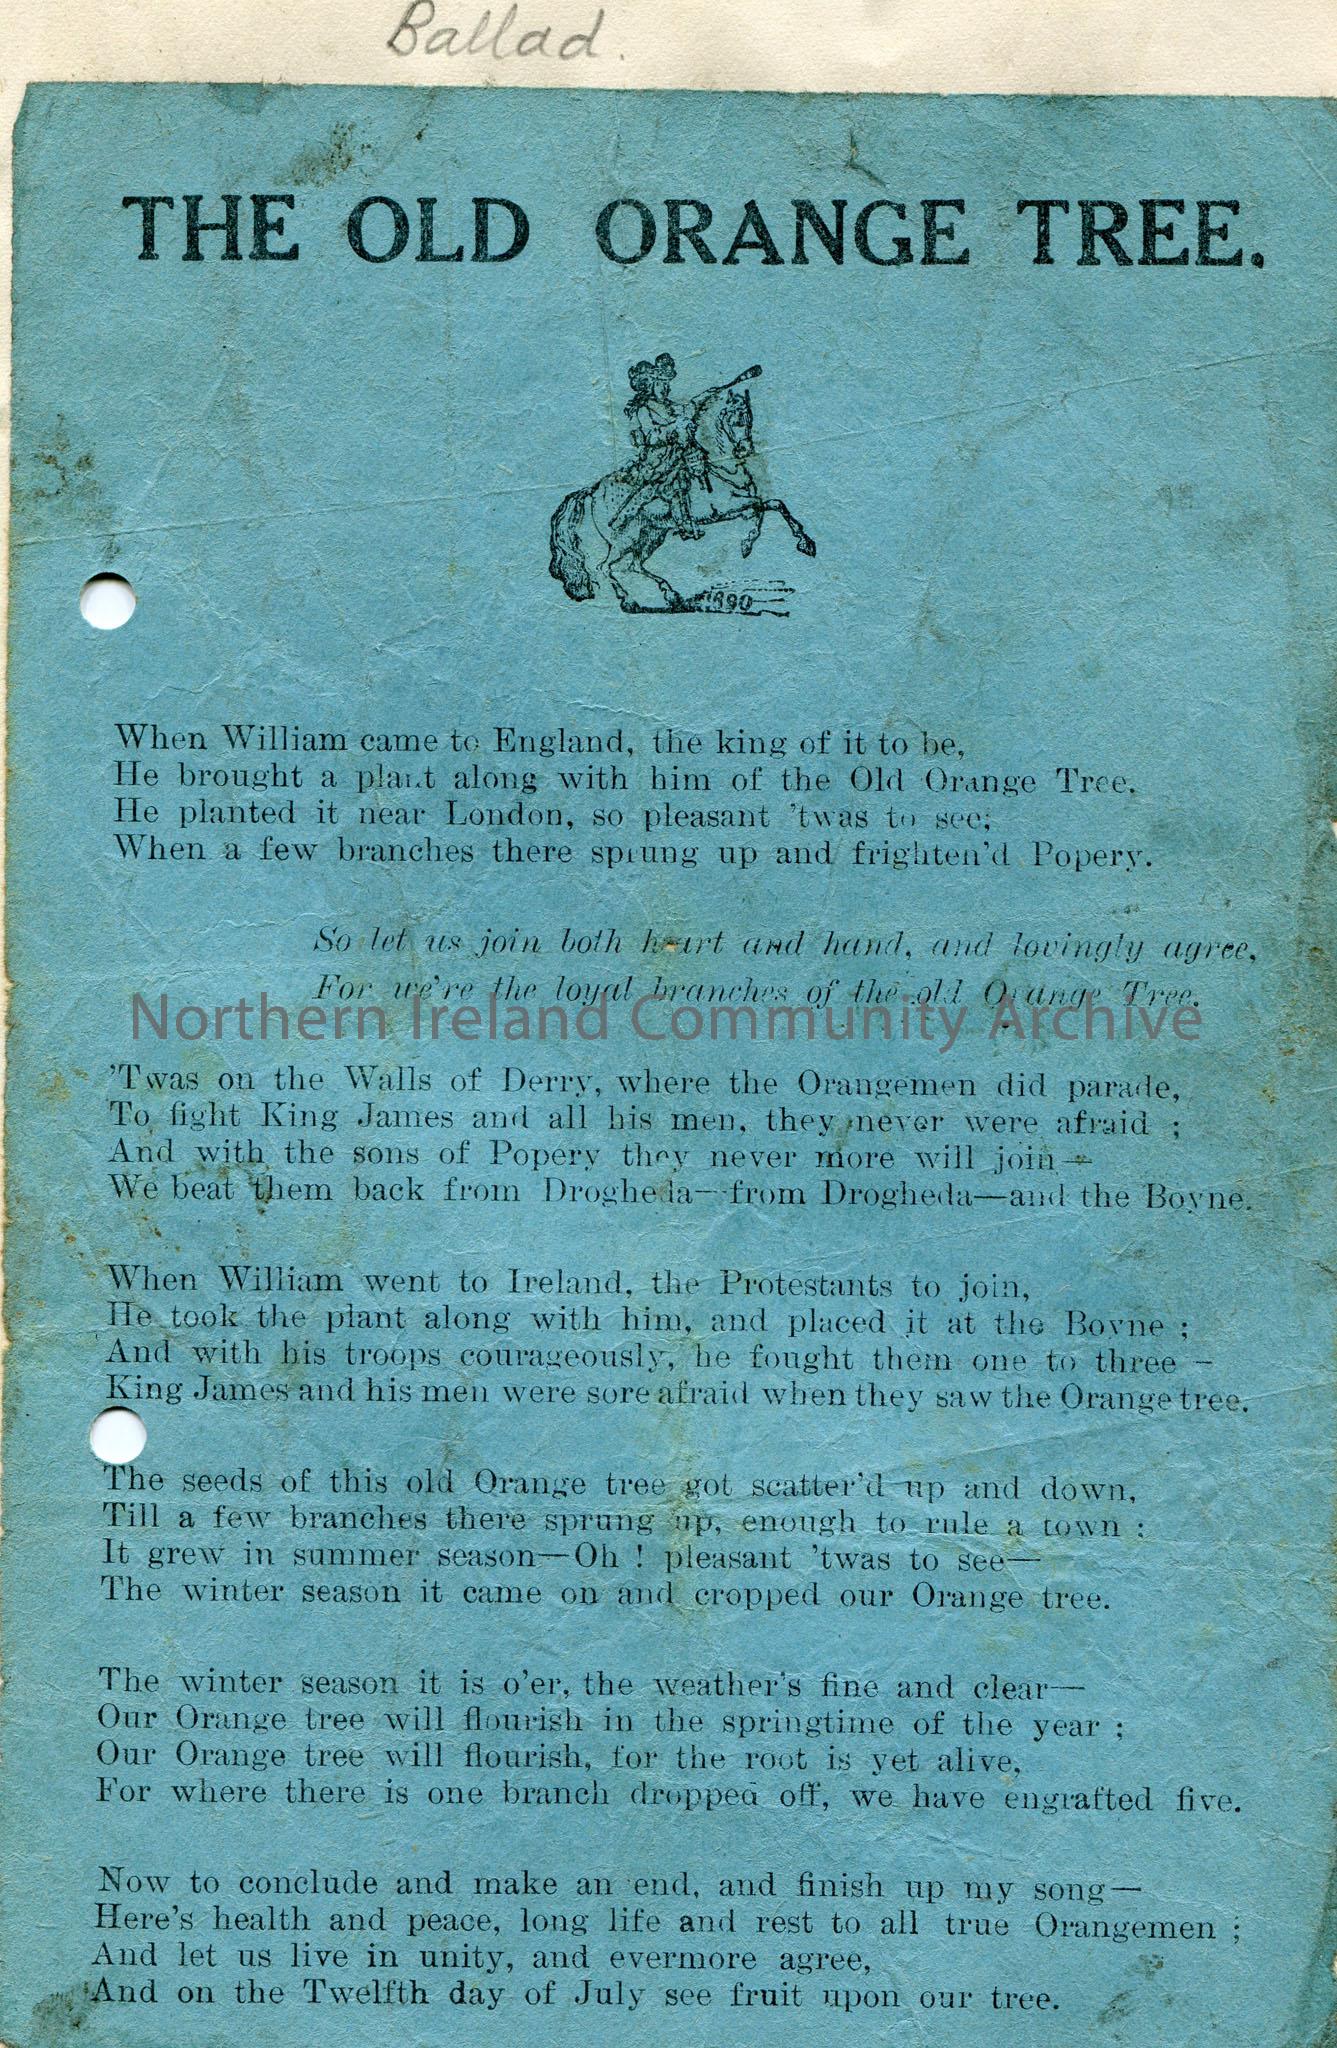 Ballad.
THE OLD ORANGE TREE.
1690
When William came to England, the king of it to be,
He brought a plant along with him of the Old Orange Tree.
He planted it near London, so pleasant 'twas to see;
When a few branches there sprung up and frighten'd Popery.
So let us join both heart and hand, and lovingly agree,
For we're the loyal branches of the old Orange Tree.
Northern Ireland Community Archive
'Twas on the Walls of Derry, where the Orangemen did parade,
To fight King James and all his men, they never were afraid ;
And with the sons of Popery they never more will join—
We beat them back from Drogheda—from Drogheda—and the Boyne.
When William went to Ireland, the Protestants to join,
He took the plant along with him, and placed it at the Boyne ;
And with his troops courageously, he fought them one to three –
King James and his men were sore afraid when they saw the Orange tree.
The seeds of this old Orange tree got scatter'd up and down,
Till a few branches there sprung up, enough to rule a town ;
It grew in summer season—Oh ! pleasant 'twas to see—
The winter season it came on and cropped our Orange tree.
The winter season it is o'er, the weather's fine and clear—
Our Orange tree will flourish in the springtime of the year ;
Our Orange tree will flourish, for the root is yet alive,
For where there is one branch dropped off, we have engrafted five.
Now to conclude and make an end, and finish up my song—
Here's health and peace, long life and rest to all true Orangemen ;
And let us live in unity, and evermore agree,
And on the Twelfth day of July see fruit upon our tree.